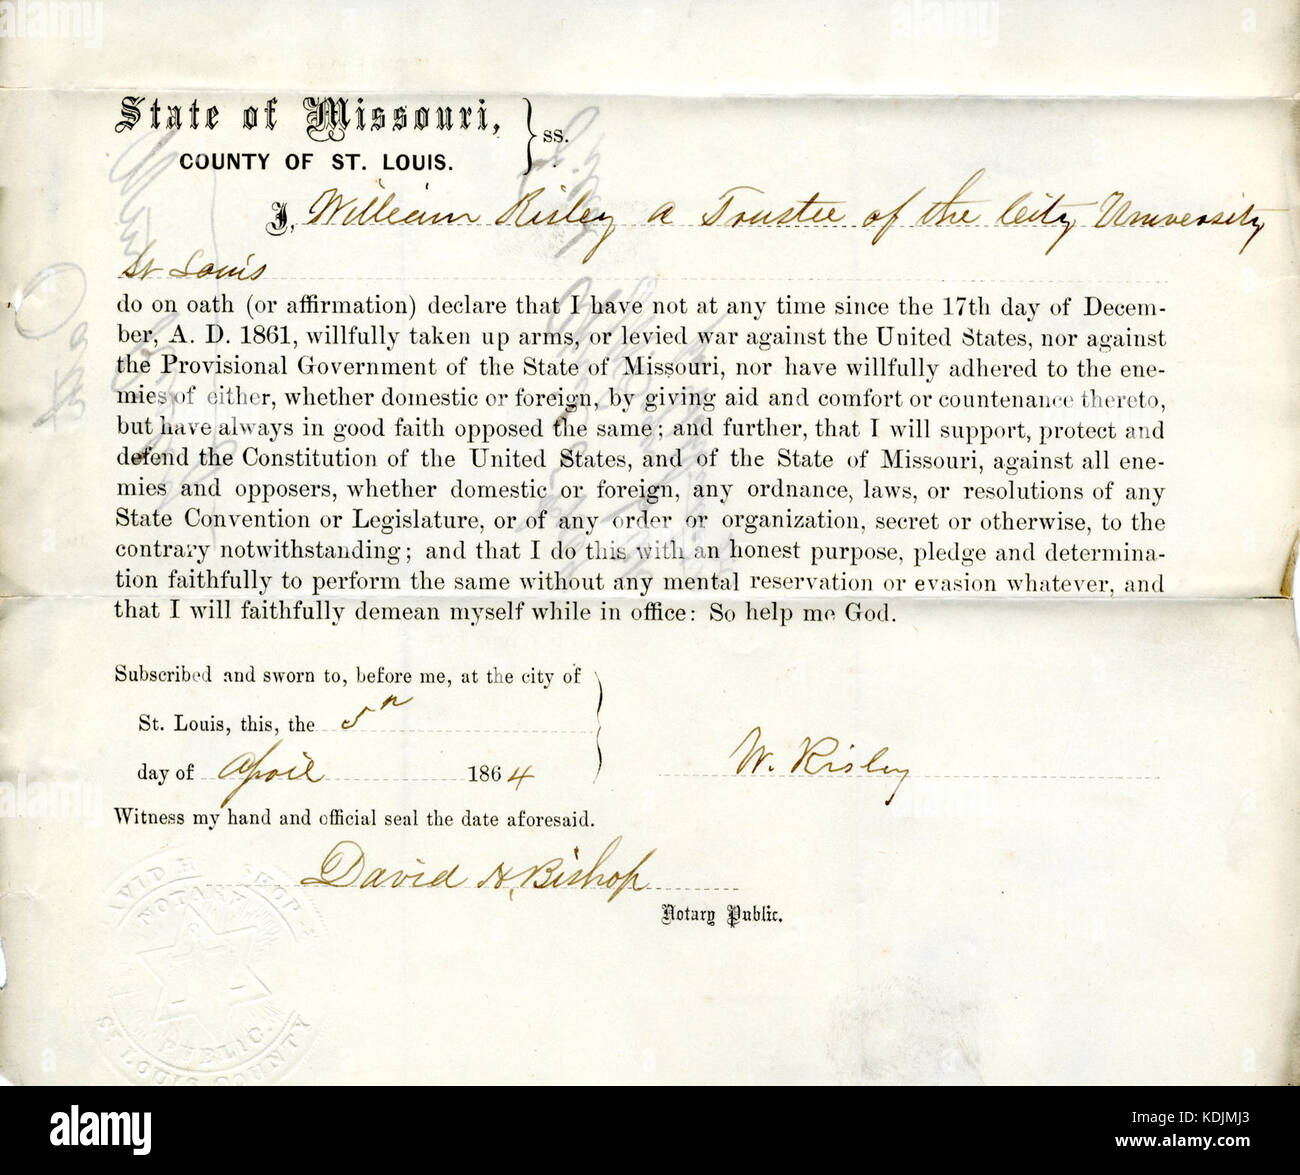 State of Missouri,
COUNTY OF ST. LOUIS.
} ss.
I, William Risley a Trustee of the City University
St Louis
do on oath (or affirmation) declare that I have not at any time since the 17th day of Decem-
ber, A. D. 1861, willfully taken up arms, or levied war against the United States, nor against
the Provisional Government of the State of Missouri, nor have willfully adhered to the ene-
mies of either, whether domestic or foreign, by giving aid and comfort or countenance thereto,
but have always in good faith opposed the same; and further, that I will support, protect and
defend the Constitution of the United States, and of the State of Missouri, against all ene-
mies and opposers, whether domestic or foreign, any ordnance, laws, or resolutions of any
State Convention or Legislature, or of any order or organization, secret or otherwise, to the
contrary notwithstanding; and that I do this with an honest purpose, pledge and determina-
tion faithfully to perform the same without any mental reservation or evasion whatever, and
that I will faithfully demean myself while in office: So help me God.
Subscribed and sworn to, before me, at the city of
St. Louis, this, the 5th
day of April 1864
W. Risley
Witness my hand and official seal the date aforesaid.
David H. Bishop
Notary Public.
DAVID H. BISHOP
NOTARY
PUBLIC.
ST LOUIS COUNTY
alamy
Image ID: KDJMJ3
www.alamy.com